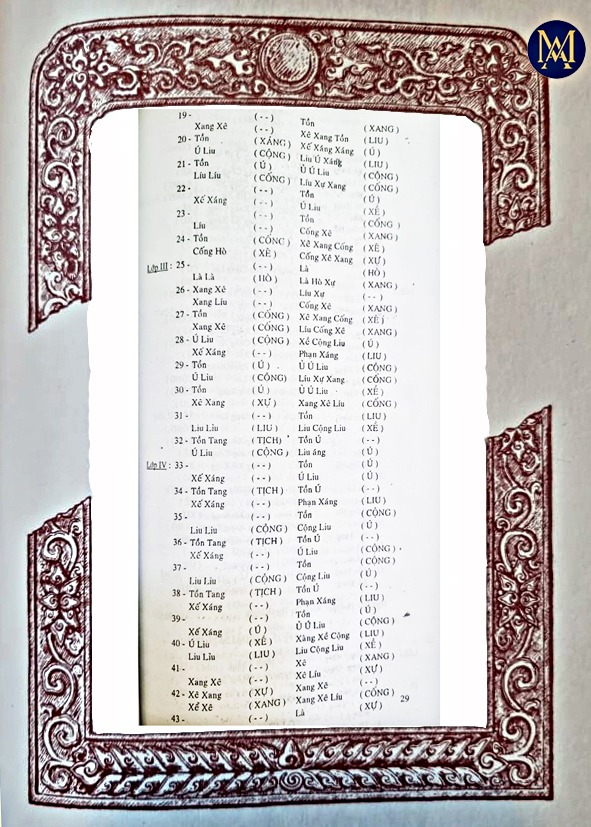 19 - ( - - ) Tồn (XANG)
Xang Xê ( - - ) Xê Xang Tồn (LIU)
20 - Tồn (XÁNG) Xế Xáng Xáng (Ú)
Ú Liu (CỘNG) Liu Ú Xáng (LIU)
21 - Tồn (Ú) Ù Ú Liu (CỘNG)
Líu Líu (CỐNG) Líu Xự Xang (CỐNG)
22 - ( - - ) Tồn (Ú)
Xế Xáng ( - - ) Ú Liu (XẾ)
23 - ( - - ) Tồn (CỐNG)
Líu ( - - ) Cống Xê (XANG)
24 - Tồn (CỐNG) Xê Xang Cống (XÊ)
Cống Hò (XÊ) Cống Xê Xang (XỰ)
Lớp III : 25 - ( - - ) Là (HÒ)
Là Là (HÒ) Là Hò Xự (XANG)
26 - Xang Xê ( - - ) Líu Xự ( - - )
Xang Líu ( - - ) Cống Xê (XANG)
27 - Tồn (CỐNG) Xê Xang Cống (XÊ)
Xang Xê (CỐNG) Líu Cống Xê (XANG)
28 - Ú Liu (CỘNG) Xề Cộng Liu (Ú)
Xế Xáng ( - - ) Phạn Xáng (LIU)
29 - Tồn (Ú) Ù Ú Liu (CỘNG)
Ú Liu (CỘNG) Líu Xự Xang (CỐNG)
30 - Tồn (Ú) Ù Ú Liu (XỀ)
Xê Xang (XỰ) Xang Xê Líu (CỐNG)
31 - ( - - ) Tồn (LIU)
Liu Liu (LIU) Liu Cộng Liu (XỀ)
32 - Tồn Tang (TỊCH) Tồn Ú ( - - )
Ú Liu (CỘNG) Liu áng (Ú)
Lớp IV : 33 - ( - - ) Tồn (Ú)
Xế Xáng ( - - ) Ú Liu (Ú)
34 - Tồn Tang (TỊCH) Tồn Ú ( - - )
Xế Xáng ( - - ) Phạn Xáng (LIU)
35 - ( - - ) Tồn (CỘNG)
Liu Liu (CỘNG) Cộng Liu (Ú)
36 - Tồn Tang (TỊCH) Tồn Ú ( - - )
Xế Xáng ( - - ) Ú Liu (CỘNG)
37 - ( - - ) Tồn (CỘNG)
Liu Liu (CỘNG) Cộng Liu (Ú)
38 - Tồn Tang (TỊCH) Tồn Ú ( - - )
Xế Xáng ( - - ) Phạn Xáng (LIU)
39 - ( - - ) Tồn (Ú)
Xế Xáng (Ú) Ù Ú Liu (CỘNG)
40 - Ú Liu (XỀ) Xàng Xề Cộng (LIU)
Liu Liu (LIU) Liu Cộng Liu (XỀ)
41 - ( - - ) Xê (XANG)
Xang Xê ( - - ) Xê Líu (XỰ)
42 - Xê Xang (XỰ) Xang Xê ( - - )
Xể Xê (XANG) Xang Xê Líu (CỐNG)
43 - ( - - ) Là (XỰ)
29